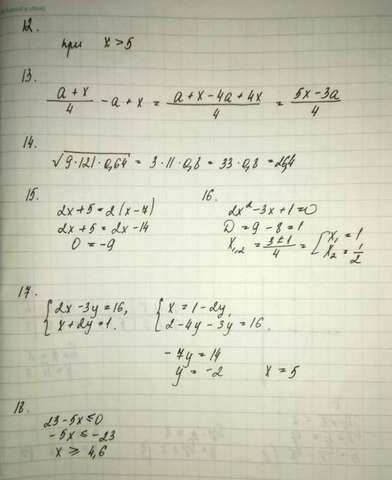 12.
при x > 5
13.
(a + x)/4 - a + x = (a + x - 4a + 4x)/4 = (5x - 3a)/4
14.
√(9·121·0,64) = 3·11·0,8 = 33·0,8 = 26,4
15.
2x + 5 = 2(x - 7)
2x + 5 = 2x - 14
0 = -9
16.
2x² - 3x + 1 = 0
D = 9 - 8 = 1
x₁,₂ = (3 ± 1)/4 = [x₁ = 1
x₂ = 1/2
17.
{2x - 3y = 16,
x + 2y = 1.
{x = 1 - 2y,
2 - 4y - 3y = 16.
-7y = 14
y = -2 x = 5
18.
23 - 5x ≤ 0
-5x ≤ -23
x ≥ 4,6